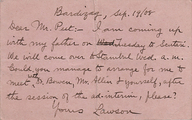 Bardizag, Sep. 19/08
Dear Mr. Peet: – I am coming up
with my father on Tuesday to
We will come over to Stambul Wed. a.m.
Could you manage to arrange for me to
meet with D. Bowen, Mr. & yourself, after
the session of the ad-interim, please?
Yours Lawson